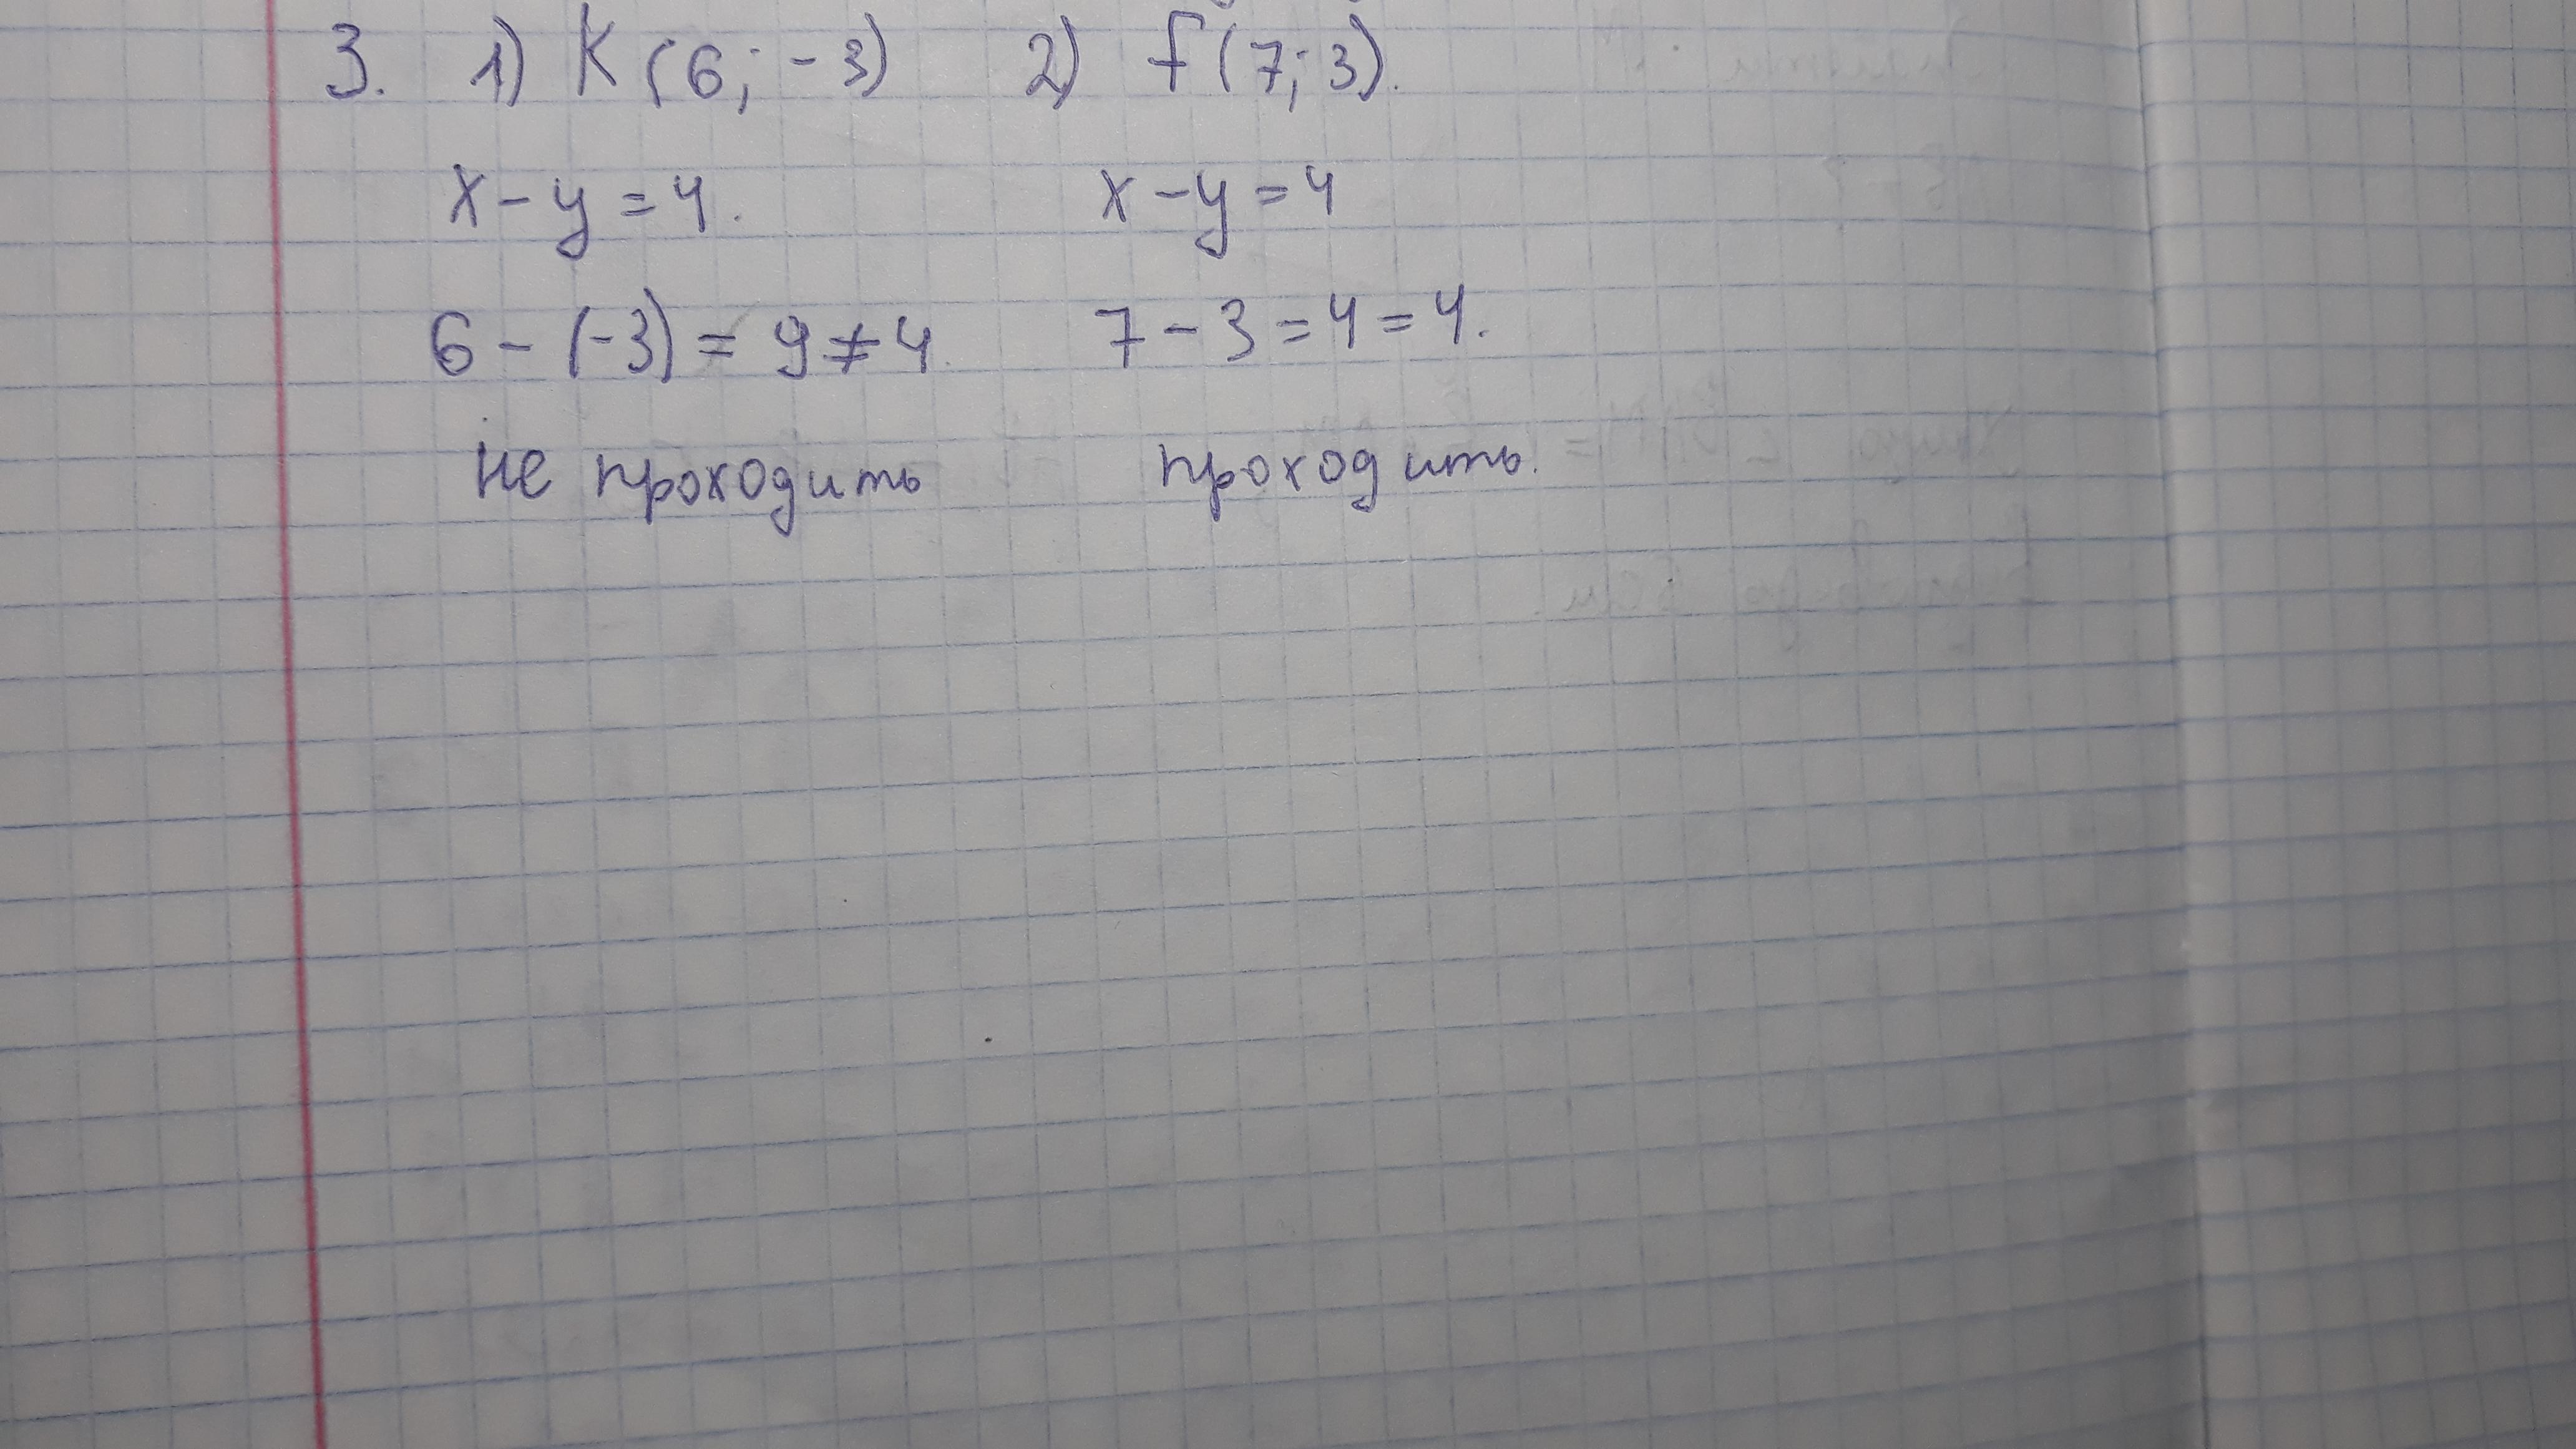 3. 1) K (6; -3) 2) F (7; 3).
x - y = 4. x - y = 4
6 - (-3) = 9 ≠ 4 7 - 3 = 4 = 4.
не проходить проходить.